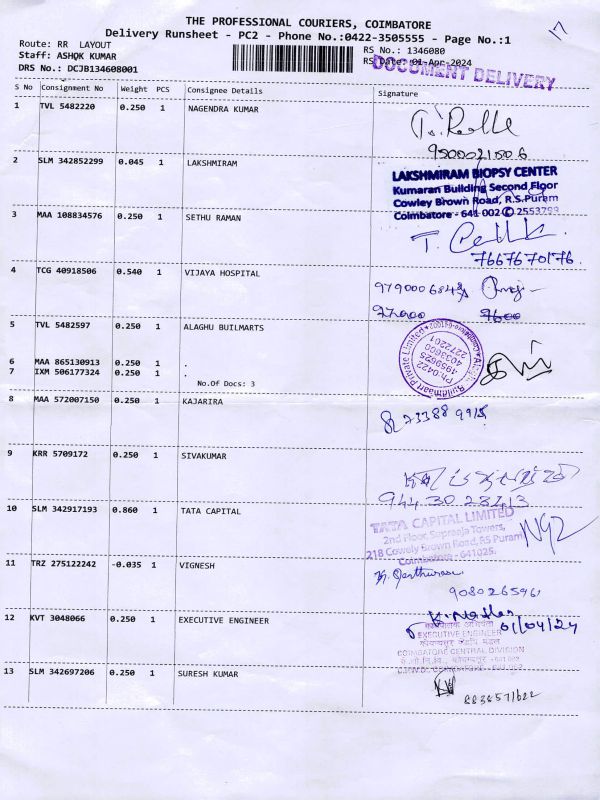 THE PROFESSIONAL COURIERS, COIMBATORE
Delivery Runsheet - PC2 - Phone No.:0422-3505555 - Page No.:1
17
Route: RR LAYOUT
Staff: ASHOK KUMAR
DRS No.: DCJB134608001
RS No.: 1346080
RS Date: 01-Apr-2024
DOCUMENT DELIVERY
S No Consignment No Weight PCS Consignee Details Signature
1 TVL 5482220 0.250 1 NAGENDRA KUMAR
9500021506
2 SLM 342852299 0.045 1 LAKSHMIRAM
LAKSHMIRAM BIOPSY CENTER
Kumaran Building Second Floor
Cowley Brown Road, R.S.Puram
Coimbatore - 641 002 ✆ 2553799
3 MAA 108834576 0.250 1 SETHU RAMAN
7667670176.
4 TCG 40918506 0.540 1 VIJAYA HOSPITAL
5 TVL 5482597 0.250 1 ALAGHU BUILMARTS
6 MAA 865130913 0.250 1 .
7 IXM 506177324 0.250 1 .
No.Of Docs: 3
8 MAA 572007150 0.250 1 KAJARIRA
9 KRR 5709172 0.250 1 SIVAKUMAR
10 SLM 342917193 0.860 1 TATA CAPITAL
TATA CAPITAL LIMITED
2nd Floor, Supreaja Towers,
218 Cowely Brown Road, RS Puram
Coimbatore - 641025.
11 TRZ 275122242 -0.035 1 VIGNESH
9080265961
12 KVT 3048066 0.250 1 EXECUTIVE ENGINEER
01/04/24
EXECUTIVE ENGINEER
COIMBATORE CENTRAL DIVISION
13 SLM 342697206 0.250 1 SURESH KUMAR